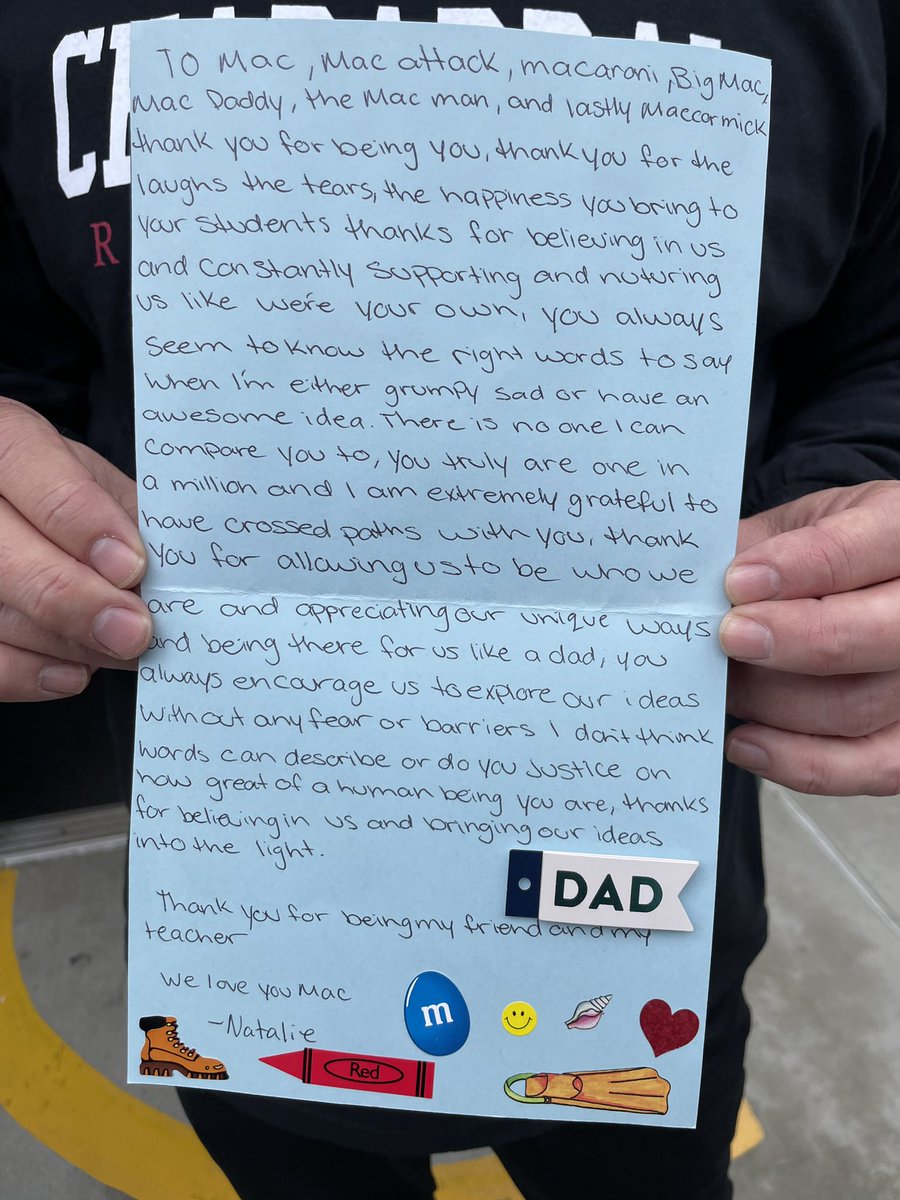 To Mac, Mac attack, macaroni, Big Mac,
Mac Daddy, the Mac man, and lastly Maccormick
thank you for being you, thank you for the
laughs the tears, the happiness you bring to
your students thanks for believing in us
and constantly supporting and nuturing
us like we're your own, you always
seem to know the right words to say
when I'm either grumpy sad or have an
awesome idea. There is no one I can
compare you to, you truly are one in
a million and I am extremely grateful to
have crossed paths with you, thank
you for allowing us to be who we
are and appreciating our unique ways
and being there for us like a dad, you
always encourage us to explore our ideas
without any fear or barriers I don't think
words can describe or do you justice on
how great of a human being you are, thanks
for believing in us and bringing our ideas
into the light.
DAD
Thank you for being my friend and my
teacher
We love you Mac
~Natalie
m
Red
R